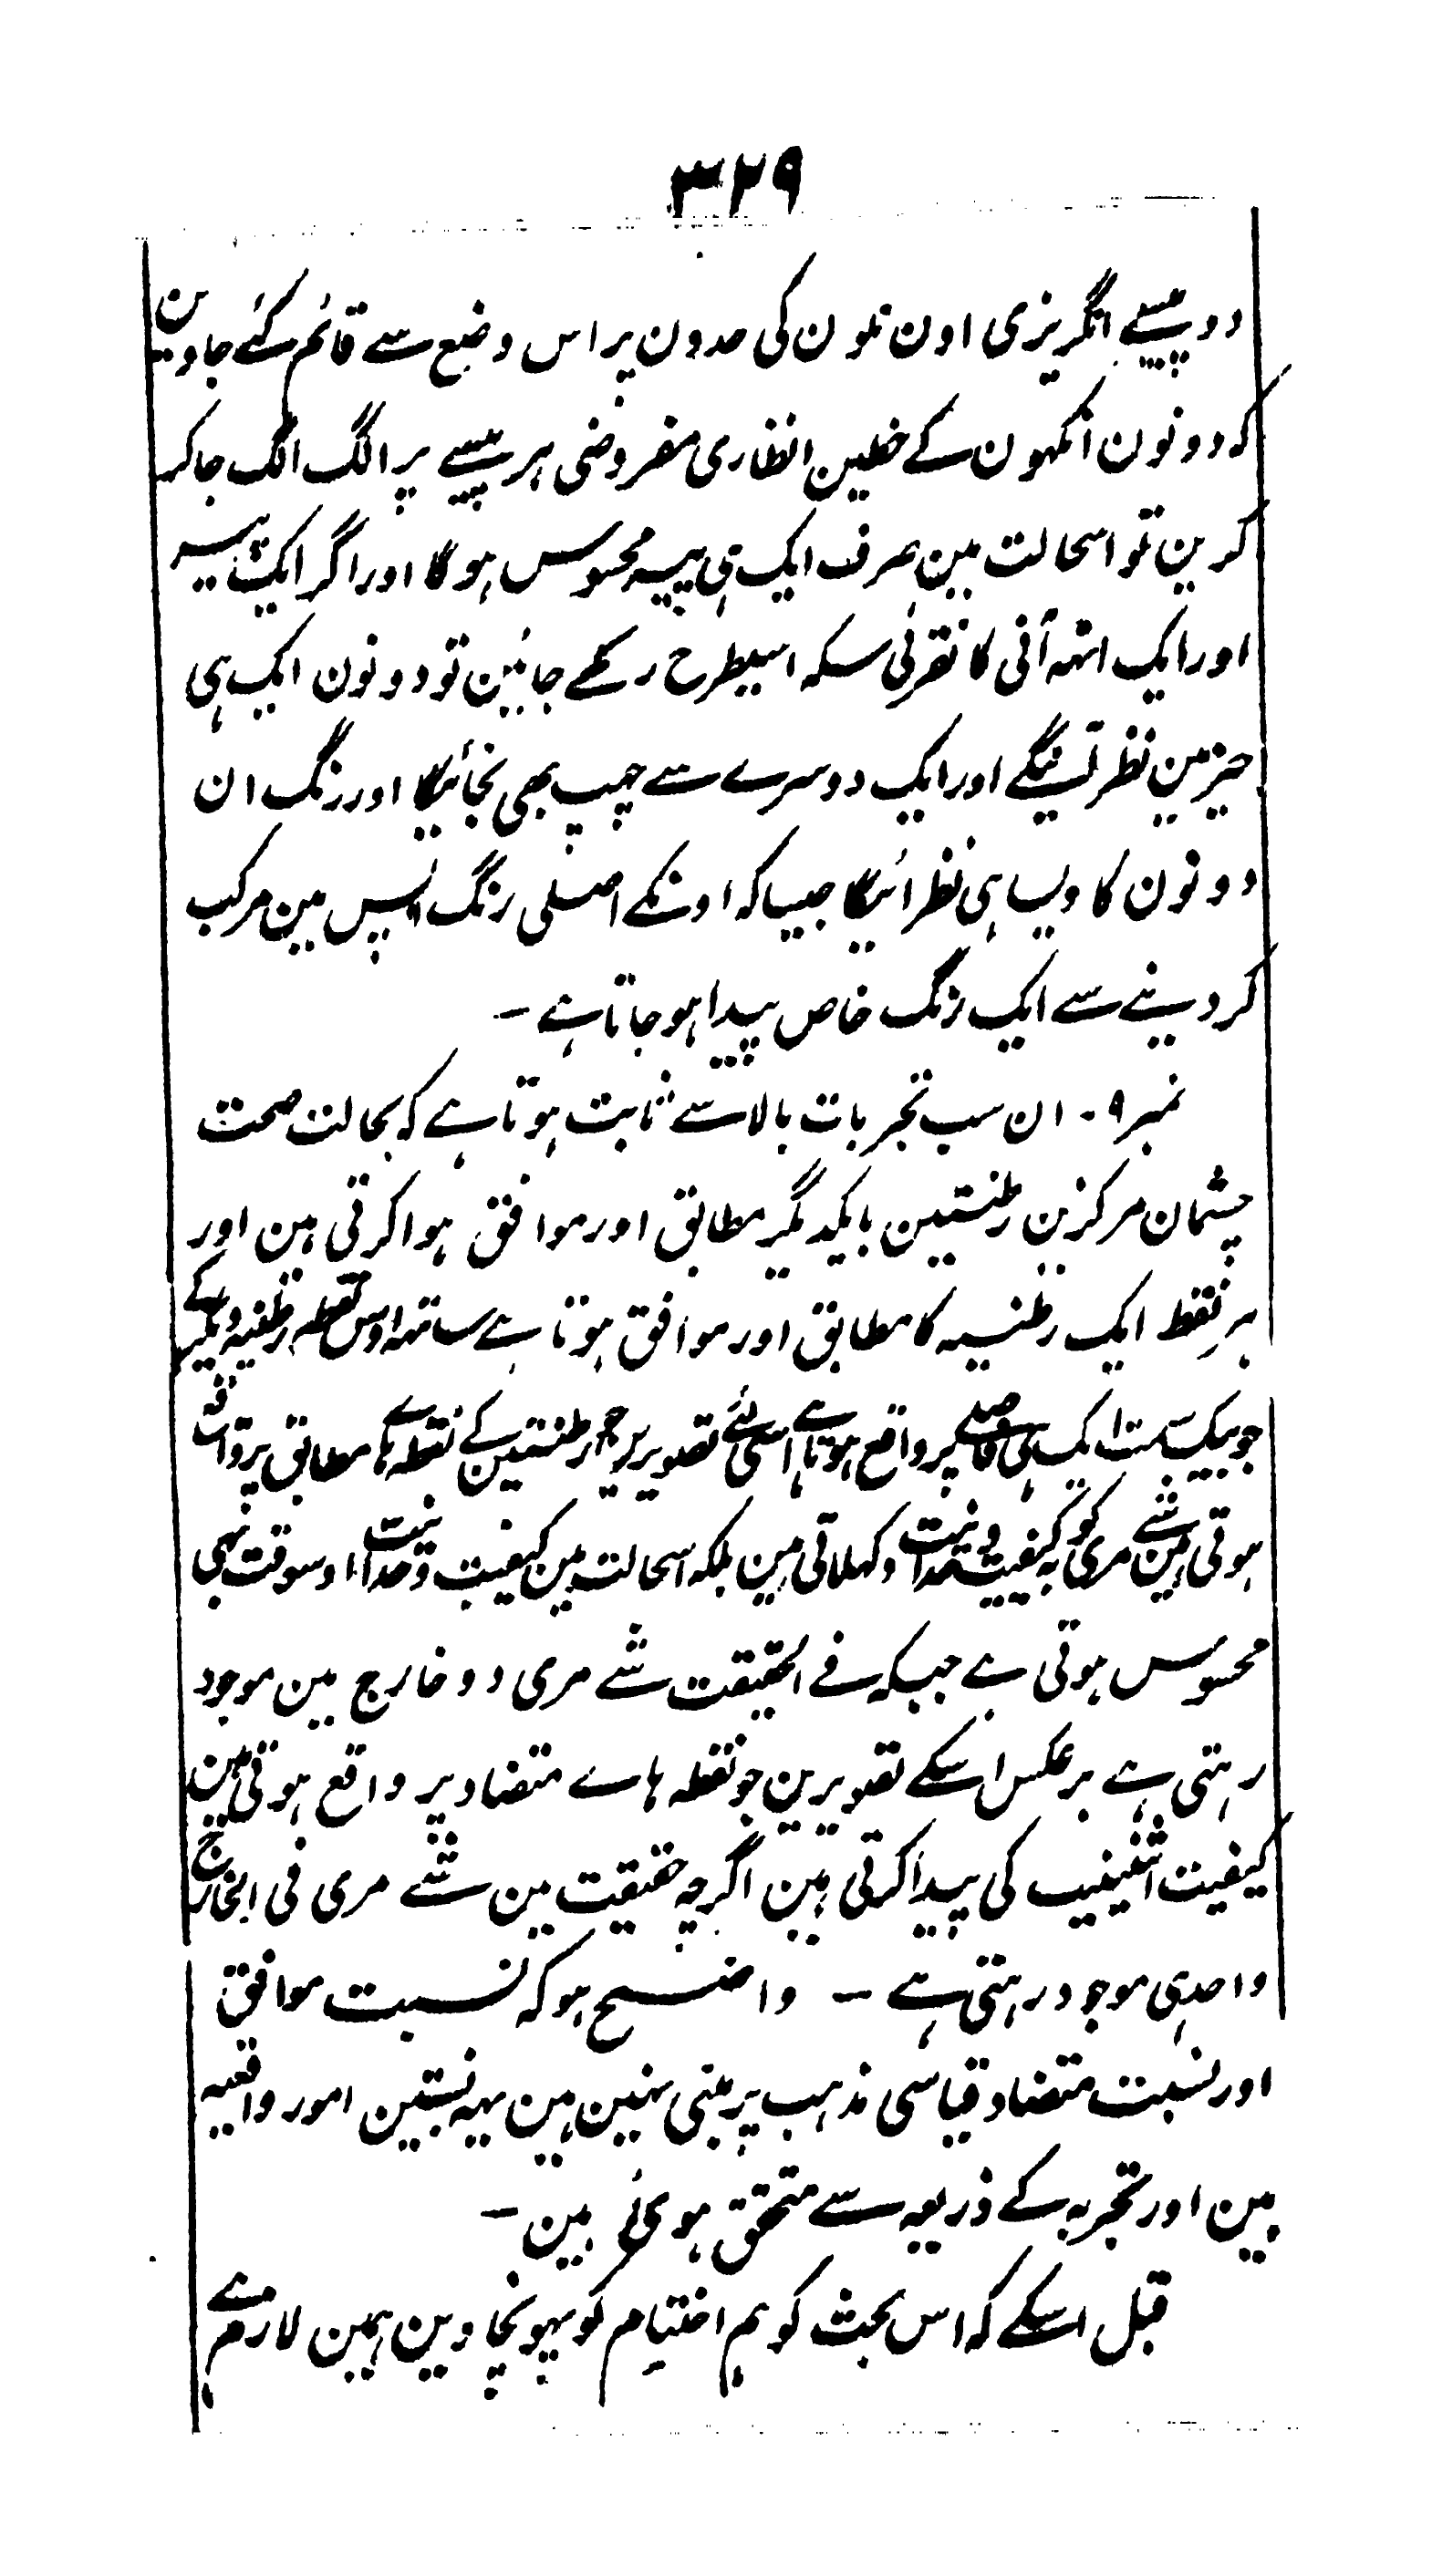 ۳۲۹
دو پیسے انگریزی اون نلون کی حدون پر اس وضع سے قائم کئے جاوین
کہ دونون انکھون کے خطین انظاری مفروضی ہر پیسے پر الگ الگ جاکر
کرین تو اسحالت مین صرف ایک ہی پیسہ محسوس ہوگا اور اگر ایک پیسہ
اور ایک اٹھ آنی کا نقرئی سکہ اسیطرح رکھے جائین تو دونون ایک ہی
حیز مین نظر آئینگے اور ایک دوسرے سے چھپ بھی نجائیگا اور رنگ ان
دونون کا ویسا ہی نظر ائیگا جیسا کہ اونکے اصلی رنگ اپس مین مرکب
کر دینے سے ایک رنگ خاص پیدا ہو جاتا ہے ۔
نمبر ۹ ۔ ان سب تجربات بالا سے ثابت ہوتا ہے کہ بحالت صحت
چشمان مرکزین رطنتین بایکدیگر مطابق اور موافق ہوا کرتی ہین اور
ہر نقط ایک رطنیہ کا مطابق اور موافق ہوتا ہے ساتہہ اوس نقطہ رطنیہ دیگر کے
جو بیک سمت ایک ہی فاصلے پر واقع ہوتا ہے اسی لئے تصویرین جو رطنتین کے نقطہ ہاے مطابق پر واقع
ہوتی ہین شے مری کو بہ کیفیت وحدانیت دکہلاتی ہین بلکہ اسحالت مین کیفیت وحدانیت اوسوقت بہی
محسوس ہوتی ہے جبکہ فے الحقیقت شے مری دو خارج مین موجود
رہتی ہے برعکس اسکے تصویرین جو نقطہ ہاے متضاد پر واقع ہوتی ہین
کیفیت اثنینیت کی پیدا کرتی ہین اگرچہ حقیقت مین شے مری فی الخارج
واحد ہی موجود رہتی ہے ۔ واضح ہو کہ نسبت موافق
اور نسبت متضاد قیاسی مذہب پر مبنی نہین ہین یہہ نسبتین امور واقعیہ
ہین اور تجربہ کے ذریعہ سے متحقق ہوئی ہین ۔
قبل اسکے کہ اس بحث کو ہم اختیام کو پہونچاوین ہمین لازم ہے